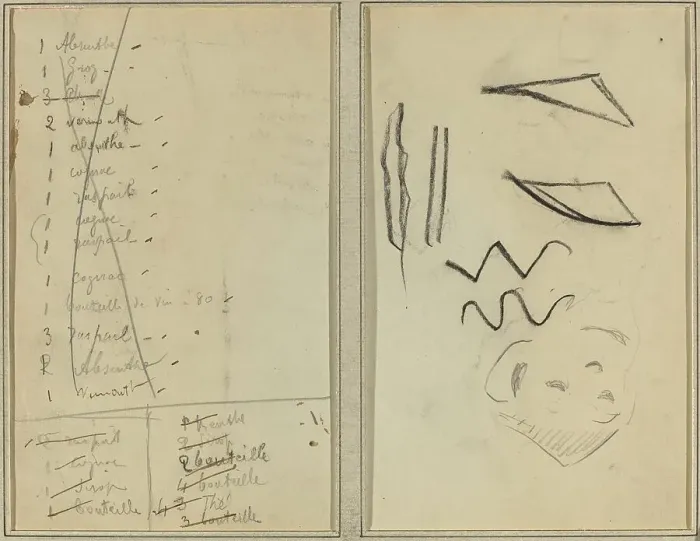 1 Absinthe
1 Grog
3
2 vermouth
1 absinthe
1 cognac
1 raspail
1 cognac
1 raspail
1 Cognac
1 bouteille de vin 80
3 raspail
2 Absinthe
1 Vermouth
2 raspail
1 cognac
1 Sirop
1 bouteille
1 menthe
2 Sirop
2 bouteille
4 bouteille
4 3 Thé
3 bouteille